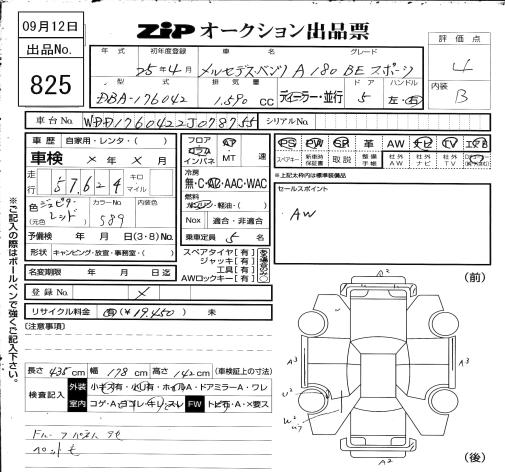 09月12日
ZIP オークション出品票
出品No.
825
年式 初年度登録 車名 グレード
25年4月 メルセデスベンツ A180 BE スポーツ
型式 排気量 ドア ハンドル
DBA-176042 1,590 CC ディーラー・並行 5 左・右
評価点
4
内装
B
車台No. WDD1760422J078755 シリアルNo.
車歴 自家用・レンタ・( )
車検 × 年 × 月
走行 57,624 キロ マイル
色 ジュピターレッド (元色) カラーNo. 589 内装色
予備検 年 月 日(3・8)No.
形状 キャンピング・放宣・事務室・( )
名変期限 年 月 日迄
フロア コラム インパネ AT MT 速
冷房
無・C・AC・AAC・WAC
燃料
ガソリン・軽油・( )
Nox 適合・非適合
乗車定員 5 名
スペアタイヤ[有]
ジャッキ[有]
工具[有]
AWロックキー[有]
PS PW SR 革 AW ナビ TV エアB
スペアキー 新車時保証書 取説 整備手帳 社外AW 社外ナビ 社外TV
※上記太枠内は標準装備品
セールスポイント
AW
登録No. ×
リサイクル料金 有(¥19,450) 未
(注意事項)
長さ 435 cm 幅 178 cm 高さ 142 cm (車検証上の寸法)
検査記入 外装 小キズ有・小凹有・ホイルA・ドアミラーA・ワレ
室内 コゲ・A・ヨゴレ・キレ・スレ FW トビ石・A・×要ス
※ご記入の際はボールペンで強くご記入下さい。
(前)
A2
A3
A3
U2
A2
(後)